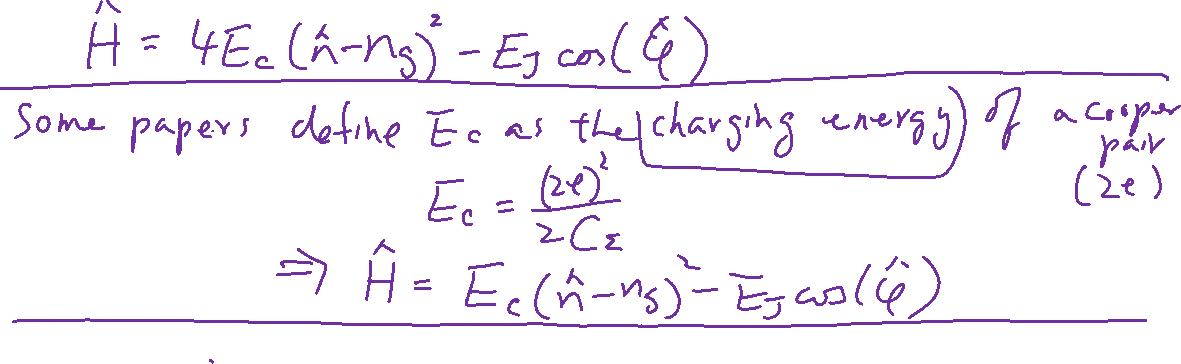 Ĥ = 4E_c (n̂ - n_g)² - E_J cos(φ̂)
Some papers define E_c as the charging energy of a cooper pair (2e)
E_c = (2e)² / 2C_Σ
⇒ Ĥ = E_c (n̂ - n_g)² - E_J cos(φ̂)